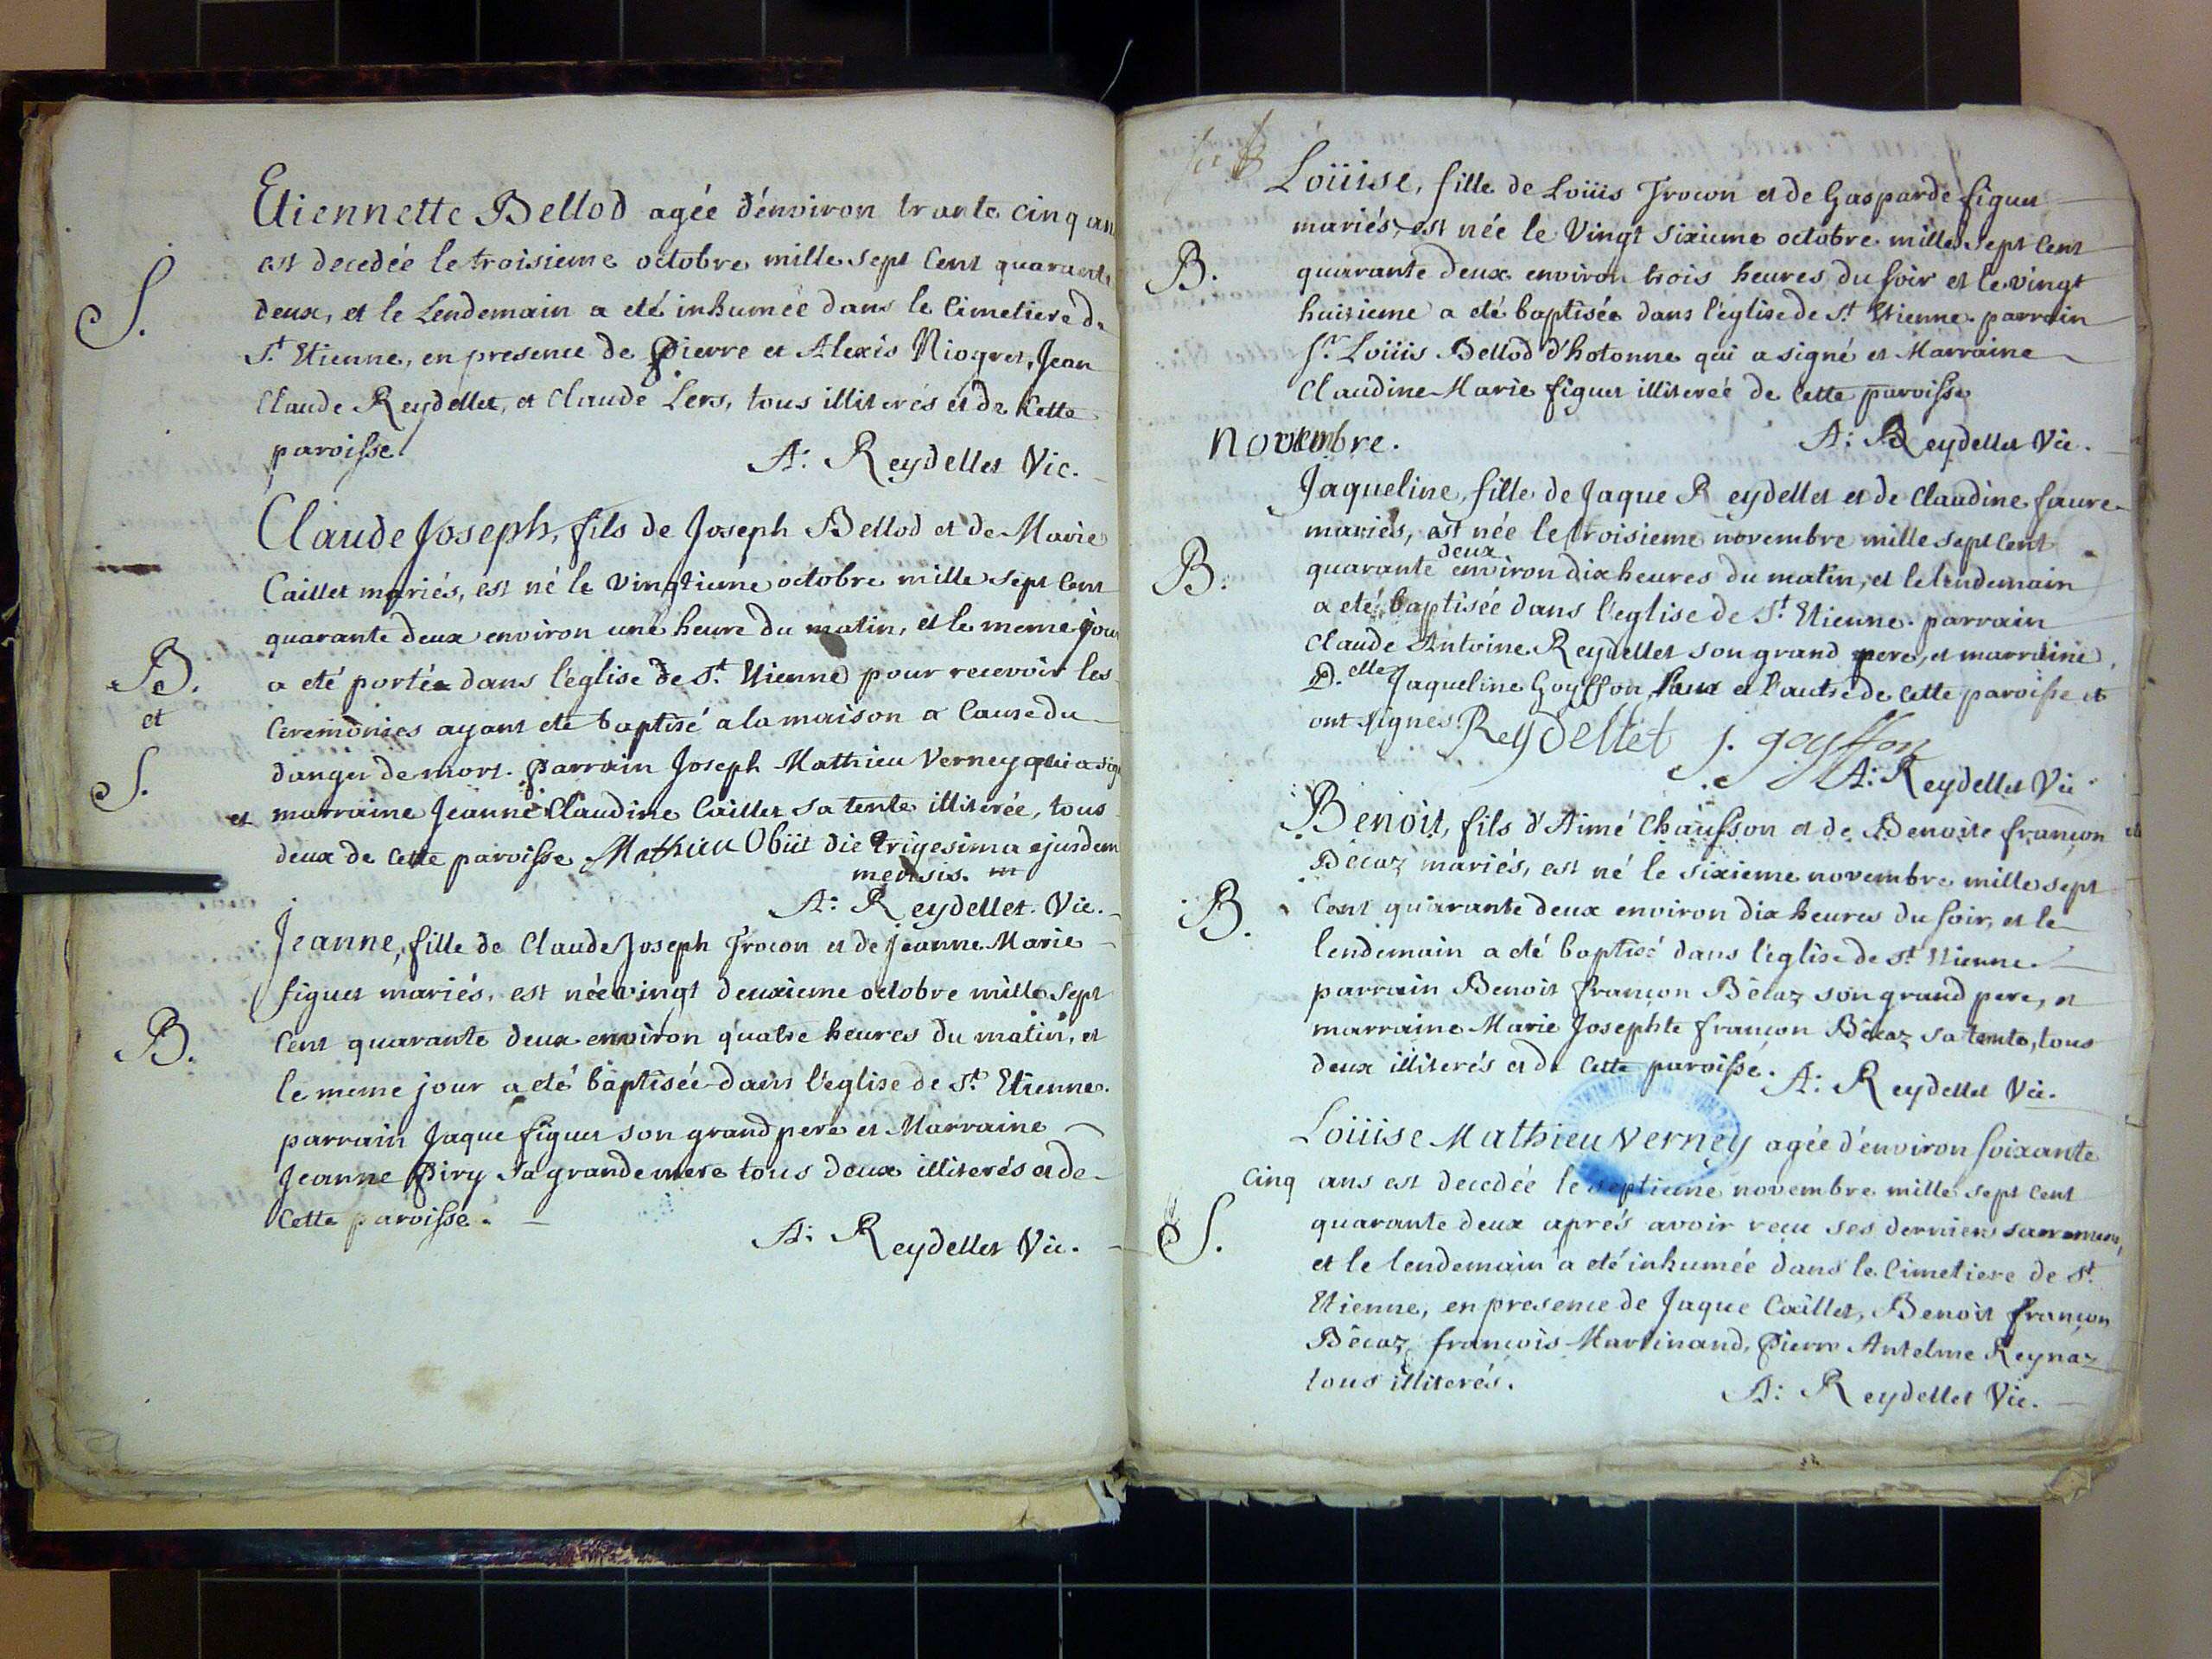 Etiennette Bellod agée d'environ trante cinq an
est decedée le troisieme octobre mille sept cent quarante
S.
deux, et le Lendemain a eté inhumée dans le Cimetiere de
St Etienne, en presence de Pierre et Alexis Niogret, Jean
Claude Reydellet, et Claude Lers, tous illiterés et de Cette
paroisse
A: Reydellet Vic.
Claude Joseph, fils de Joseph Bellod et de Marie
Caillet mariés, est né le Vingtieme octobre mille sept Cent
quarante deux environ une heure du matin, et le meme jour
B.
a eté porté dans l'église de St Etienne pour recevoir les
et
Ceremonies ayant eté baptisé a la maison a Cause du
S.
danger de mort. Parrain Joseph Mathieu Verney qui a sig
et marraine Jeanne Claudine Caillet sa tente illiterée, tous
deux de Cette paroisse Mathieu Obiit die trigesima ejusdem
mensis.
A: Reydellet. Vic.
Jeanne, fille de Claude Joseph Trocon et de Jeanne Marie
figuet mariés, est née vingt deuxieme octobre mille sept
B.
Cent quarante deux environ quatre heures du matin, et
le meme jour a eté baptisée dans l'eglise de St Etienne.
parrain Jaque figuet son grand pere et Marraine
Jeanne Piry sa grande mere tous deux illiterés et de
Cette paroisse.
A: Reydellet Vic.
Loüise, fille de Loüis Trocon et de Gasparde figuet
mariés, est née le Vingt sixieme octobre mille sept Cent
B.
quarante deux environ trois heures du soir et le vingt
huitieme a eté baptisée dans l'église de St Etienne. parrain
Sr Loüis Bellod d'hotonne qui a signé et Marraine
Claudine Marie figuet illiterée de Cette paroisse
A: Reydellet Vic.
Novembre.
Jaqueline, fille de Jaque Reydellet et de Claudine faure
mariés, est née le troisieme novembre mille sept Cent
deux
B.
quarante environ dix heures du matin, et le lendemain
a eté baptisée dans l'eglise de St Etienne. parrain
Claude Antoine Reydellet son grand pere, et marraine
D.elle Jaqueline Goyffon, l'un et l'autre de Cette paroisse et
ont signés. Reydellet j. goyffon
A: Reydellet Vic
Benoit, fils d'Aimé Chausson et de Benoite françon
Bécaz mariés, est né le sixieme novembre mille sept
B.
Cent quarante deux environ dix heures du soir, et le
lendemain a eté baptisé dans l'église de St Etienne.
parrain Benoit françon Bécaz son grand pere, et
marraine Marie Josephte françon Bécaz sa tente, tous
deux illiterés et de Cette paroisse. A: Reydellet Vic.
Loüise Mathieu Verney agée d'environ soixante
Cinq ans est decedée le septieme novembre mille sept cent
S.
quarante deux aprés avoir reçu ses derniers sacremens,
et le lendemain a eté inhumée dans le Cimetiere de St
Etienne, en presence de Jaque Caillet, Benoit françon
Bécaz, francois Martinand, Pierre Antelme Reynaz
tous illiterés.
A: Reydellet Vic.